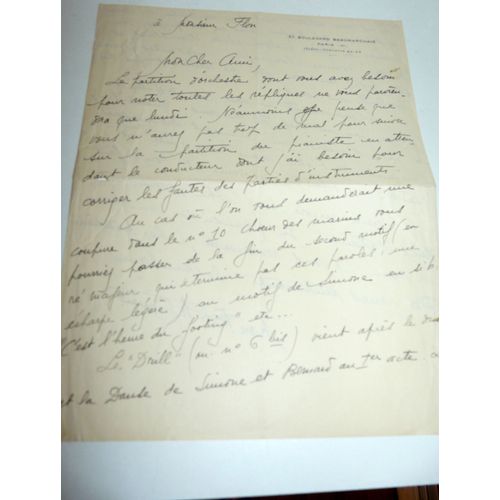 à Monsieur Flon
21 BOULEVARD BEAUMARCHAIS
PARIS
Mon Cher Ami,
La partition d'orchestre dont vous avez besoin
pour noter toutes les répliques ne vous parvien-
dra que lundi. Néanmoins je pense que
vous n'aurez pas trop de mal pour suivre
sur la partition du pianiste en atten-
dant le conducteur dont j'ai besoin pour
corriger les fautes des parties d'instruments
Au cas où l'on vous demanderait une
coupure dans le n° 10 choeur des marins vous
pourriez passer de la fin du second motif (en
ré majeur qui termine par ces paroles: une
écharpe légère) au motif de Simone en si b
"C'est l'heure du footing" etc...
Le "Drill" (ou n° 6 bis) vient après le
et la Danse de Simone et Bernard au 1er acte